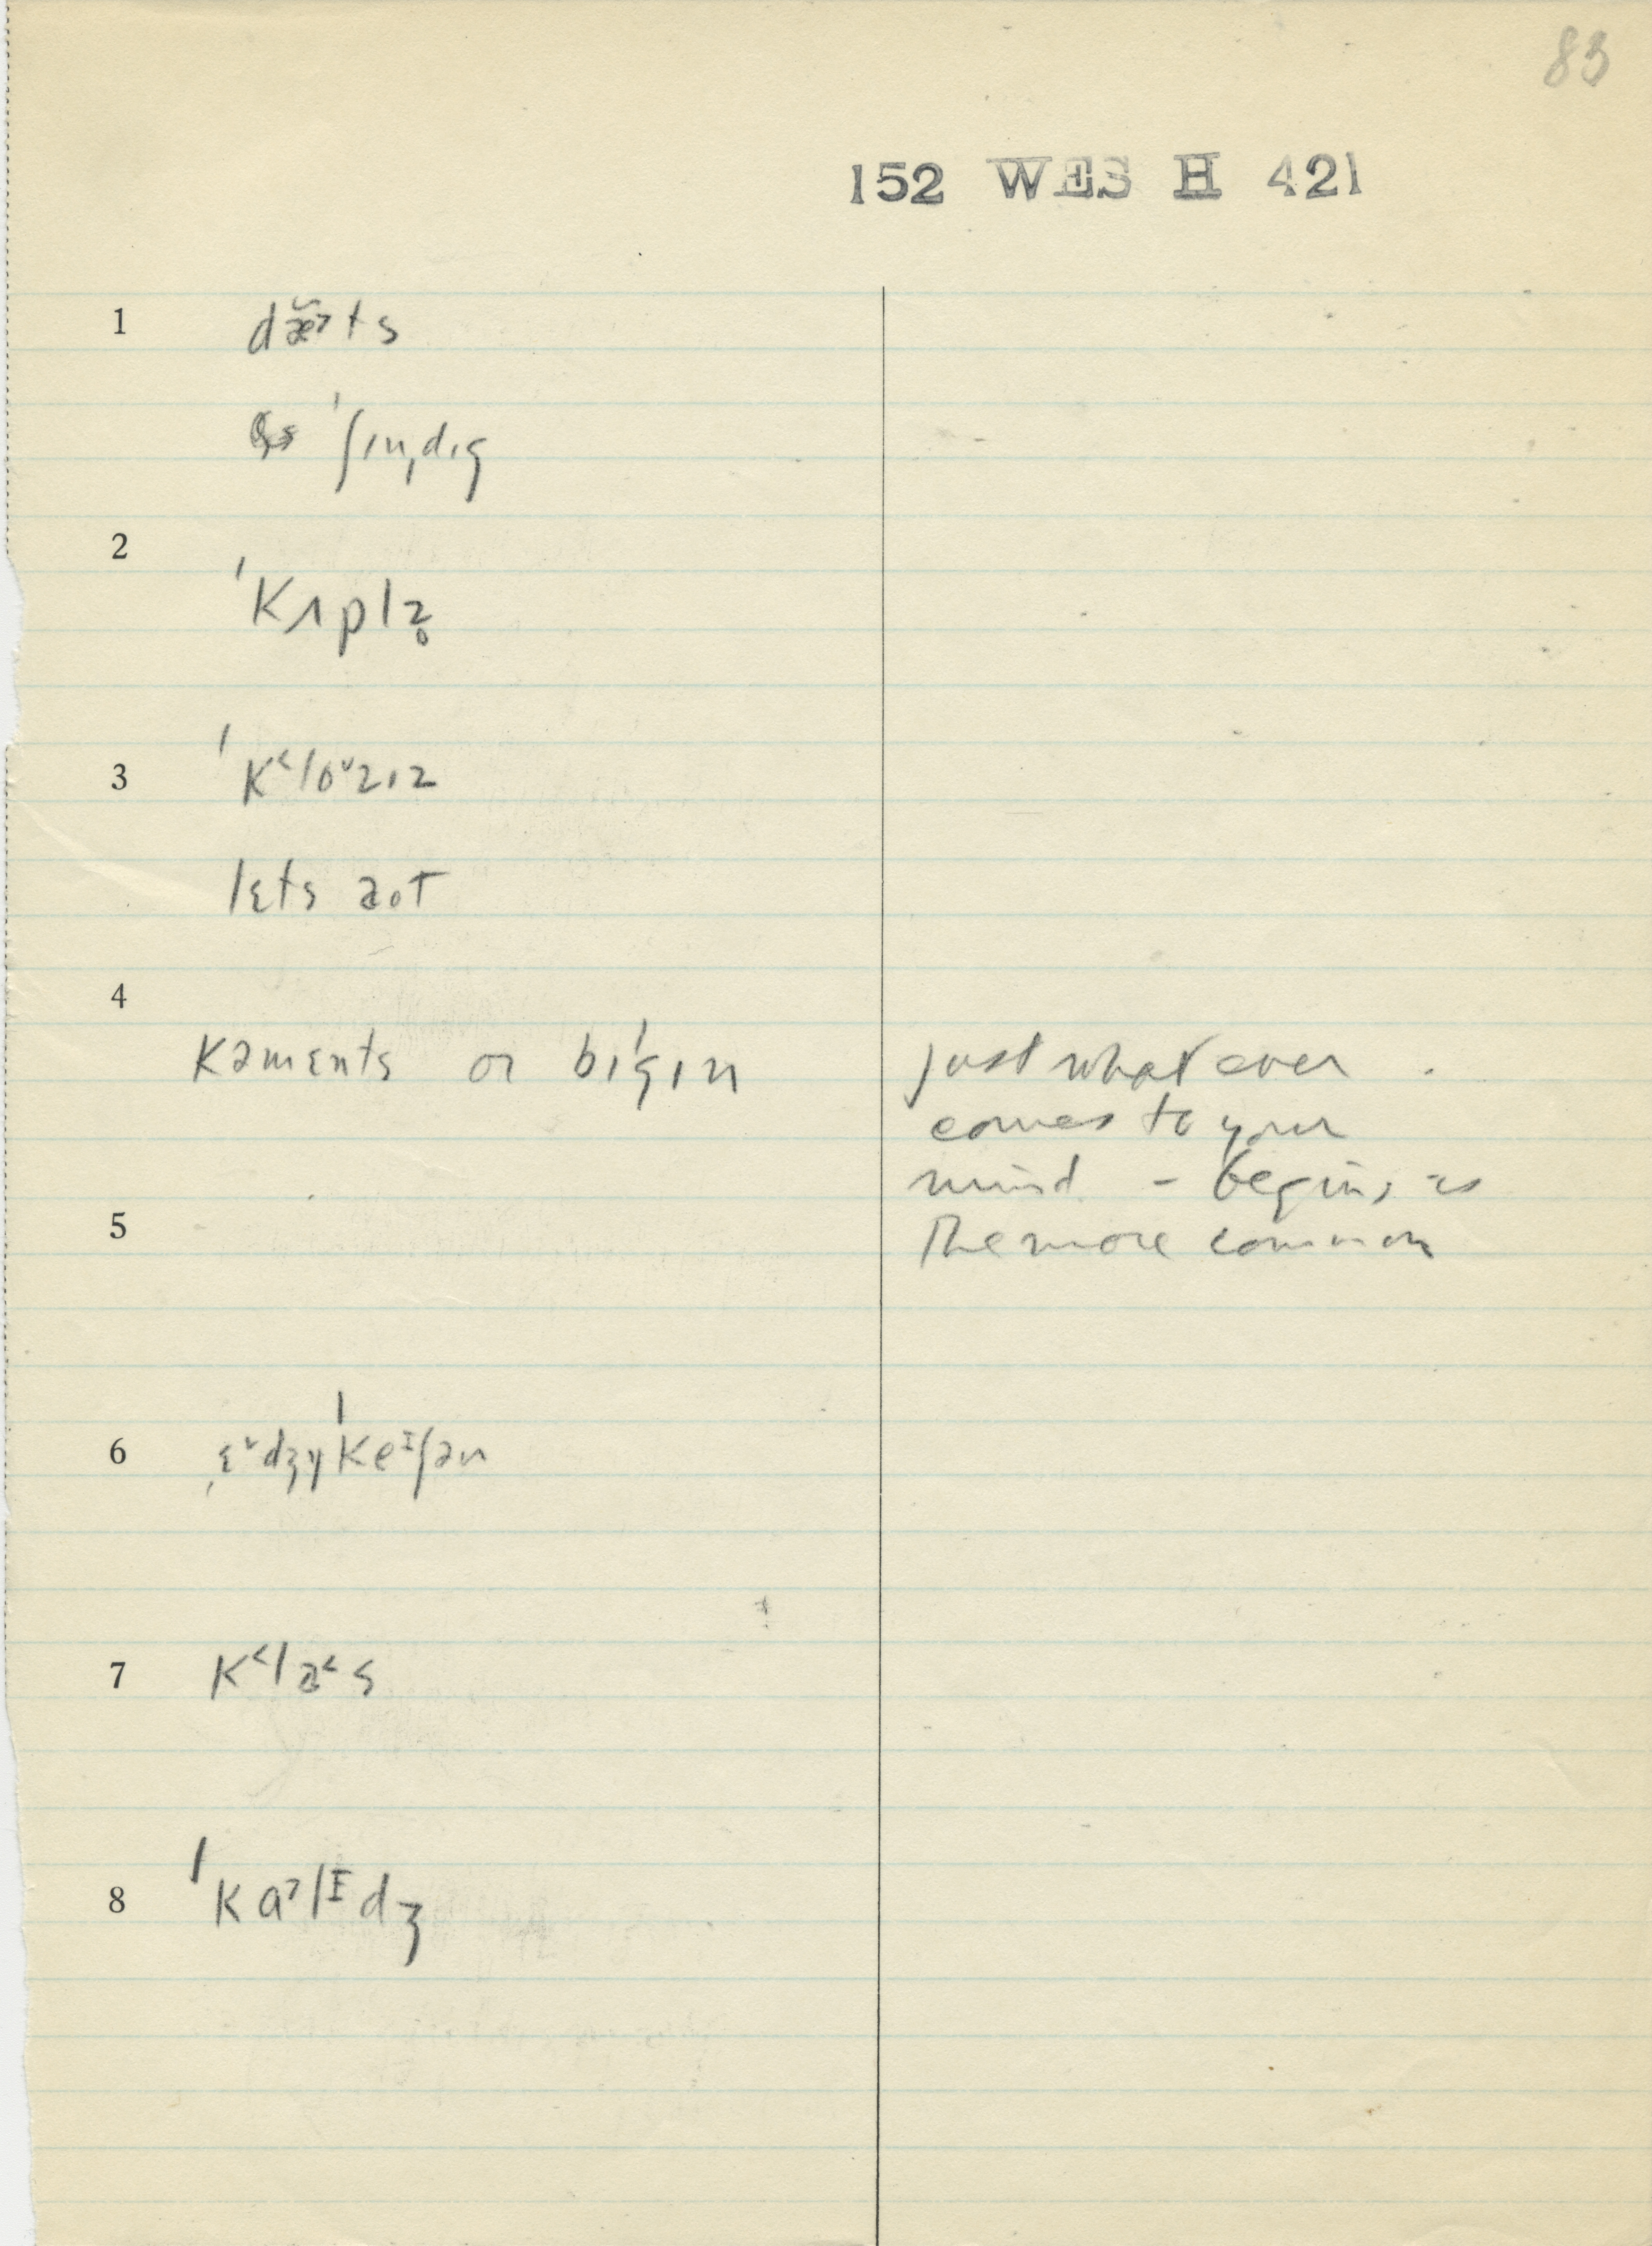 83
152 WES H 421
1 dæ̆˃ts
ə ˈʃɪnˌdɪg
2 ˈkʌplz̥
3 ˈk˂loᵛzɪz
lɛts aʊt
4 kəmɛnts or bɪˈgɪn
just whatever
comes to your
mind - begins is
5 the more common
6 ˌɛᵛdʒyˈkeᶦʃən
7 k˂la˂s
8 ˈkɑ˃lᶦdʒ